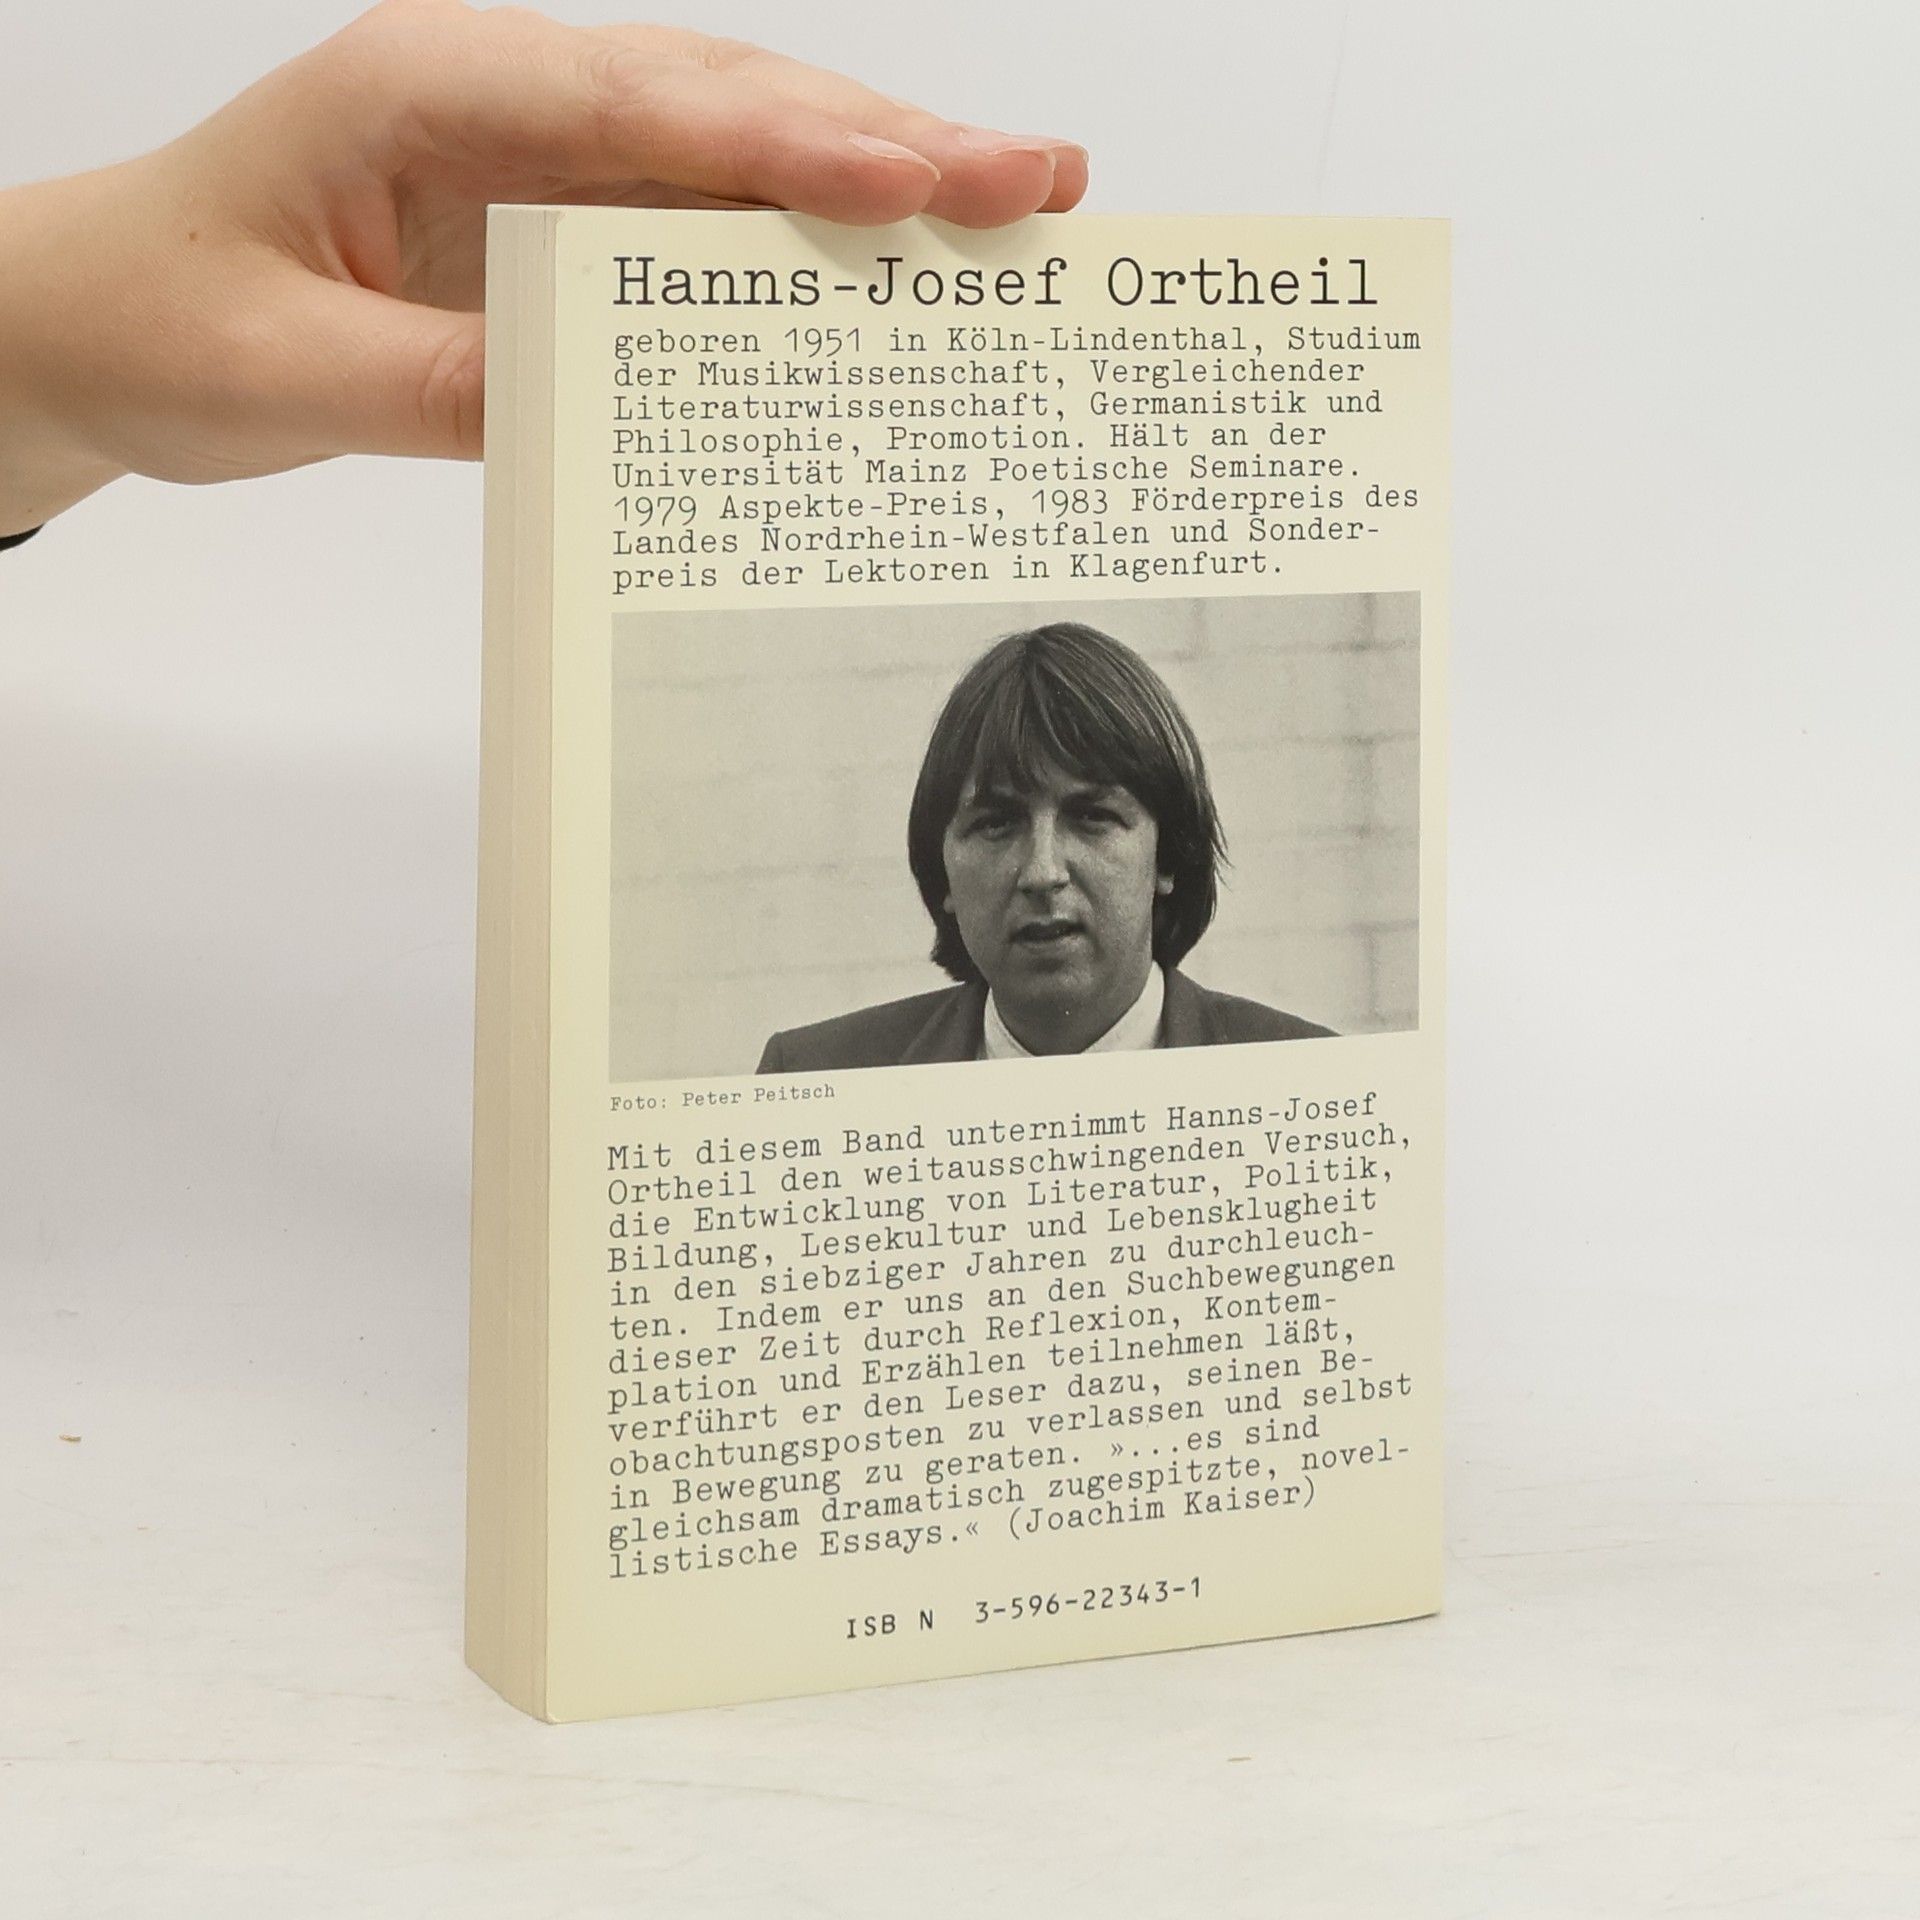 Hanns-Josef Ortheil
geboren 1951 in Köln-Lindenthal, Studium
der Musikwissenschaft, Vergleichender
Literaturwissenschaft, Germanistik und
Philosophie, Promotion. Hält an der
Universität Mainz Poetische Seminare.
1979 Aspekte-Preis, 1983 Förderpreis des
Landes Nordrhein-Westfalen und Sonder-
preis der Lektoren in Klagenfurt.
Foto: Peter Peitsch
Mit diesem Band unternimmt Hanns-Josef
Ortheil den weitausschwingenden Versuch,
die Entwicklung von Literatur, Politik,
Bildung, Lesekultur und Lebensklugheit
in den siebziger Jahren zu durchleuch-
ten. Indem er uns an den Suchbewegungen
dieser Zeit durch Reflexion, Kontem-
plation und Erzählen teilnehmen läßt,
verführt er den Leser dazu, seinen Be-
obachtungsposten zu verlassen und selbst
in Bewegung zu geraten. »...es sind
gleichsam dramatisch zugespitzte, novel-
listische Essays.« (Joachim Kaiser)
ISB N 3-596-22343-1